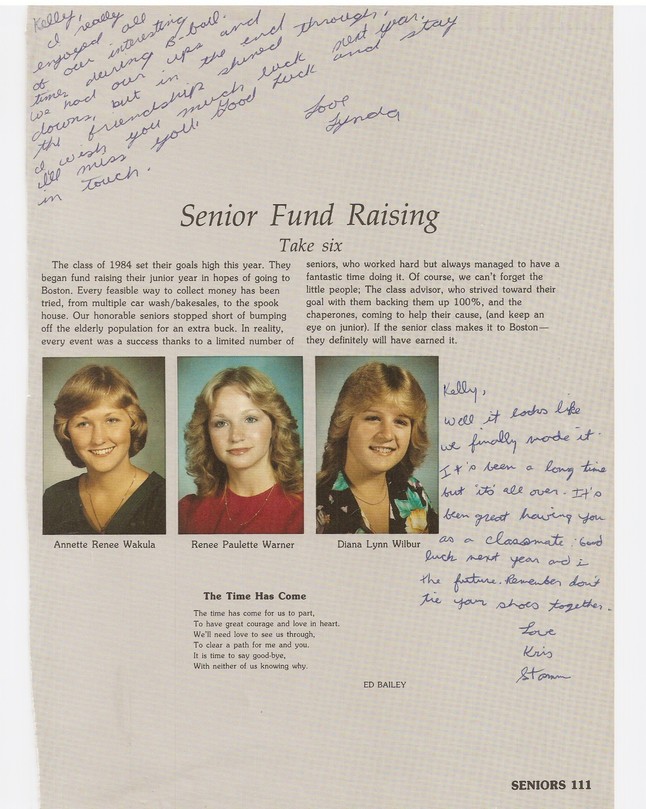 Kelly,
I really
enjoyed all
of our interesting
times during B-ball.
We had our ups and
downs, but in the end
the friendship shined through.
I wish you much luck next year.
I'll miss you. Good Luck and stay
in touch.
Love
Lynda
Senior Fund Raising
Take six
The class of 1984 set their goals high this year. They
began fund raising their junior year in hopes of going to
Boston. Every feasible way to collect money has been
tried, from multiple car wash/bakesales, to the spook
house. Our honorable seniors stopped short of bumping
off the elderly population for an extra buck. In reality,
every event was a success thanks to a limited number of
seniors, who worked hard but always managed to have a
fantastic time doing it. Of course, we can't forget the
little people; The class advisor, who strived toward their
goal with them backing them up 100%, and the
chaperones, coming to help their cause, (and keep an
eye on junior). If the senior class makes it to Boston—
they definitely will have earned it.
Kelly,
Well it looks like
we finally made it.
It's been a long time
but it's all over. It's
been great having you
as a classmate. Good
luck next year and i
the future. Remember don't
tie your shoes together.
Love
Kris
Annette Renee Wakula
Renee Paulette Warner
Diana Lynn Wilbur
The Time Has Come
The time has come for us to part,
To have great courage and love in heart.
We'll need love to see us through,
To clear a path for me and you.
It is time to say good-bye,
With neither of us knowing why.
ED BAILEY
SENIORS 111